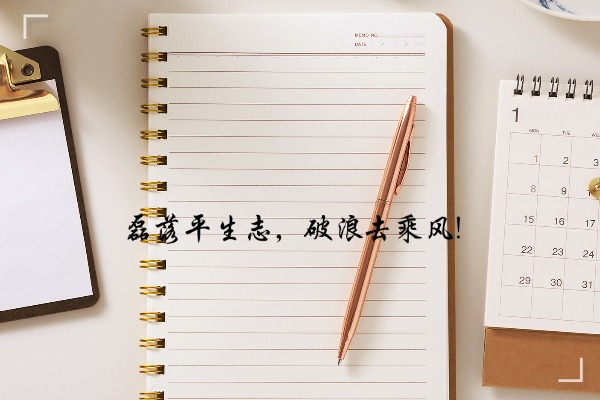 MEMO NO.
DATE / /
磊落平生志，破浪去乘风!
1
MON TUE WE
1 2 3
8 9
15 16 17
22 23 24
29 30 31